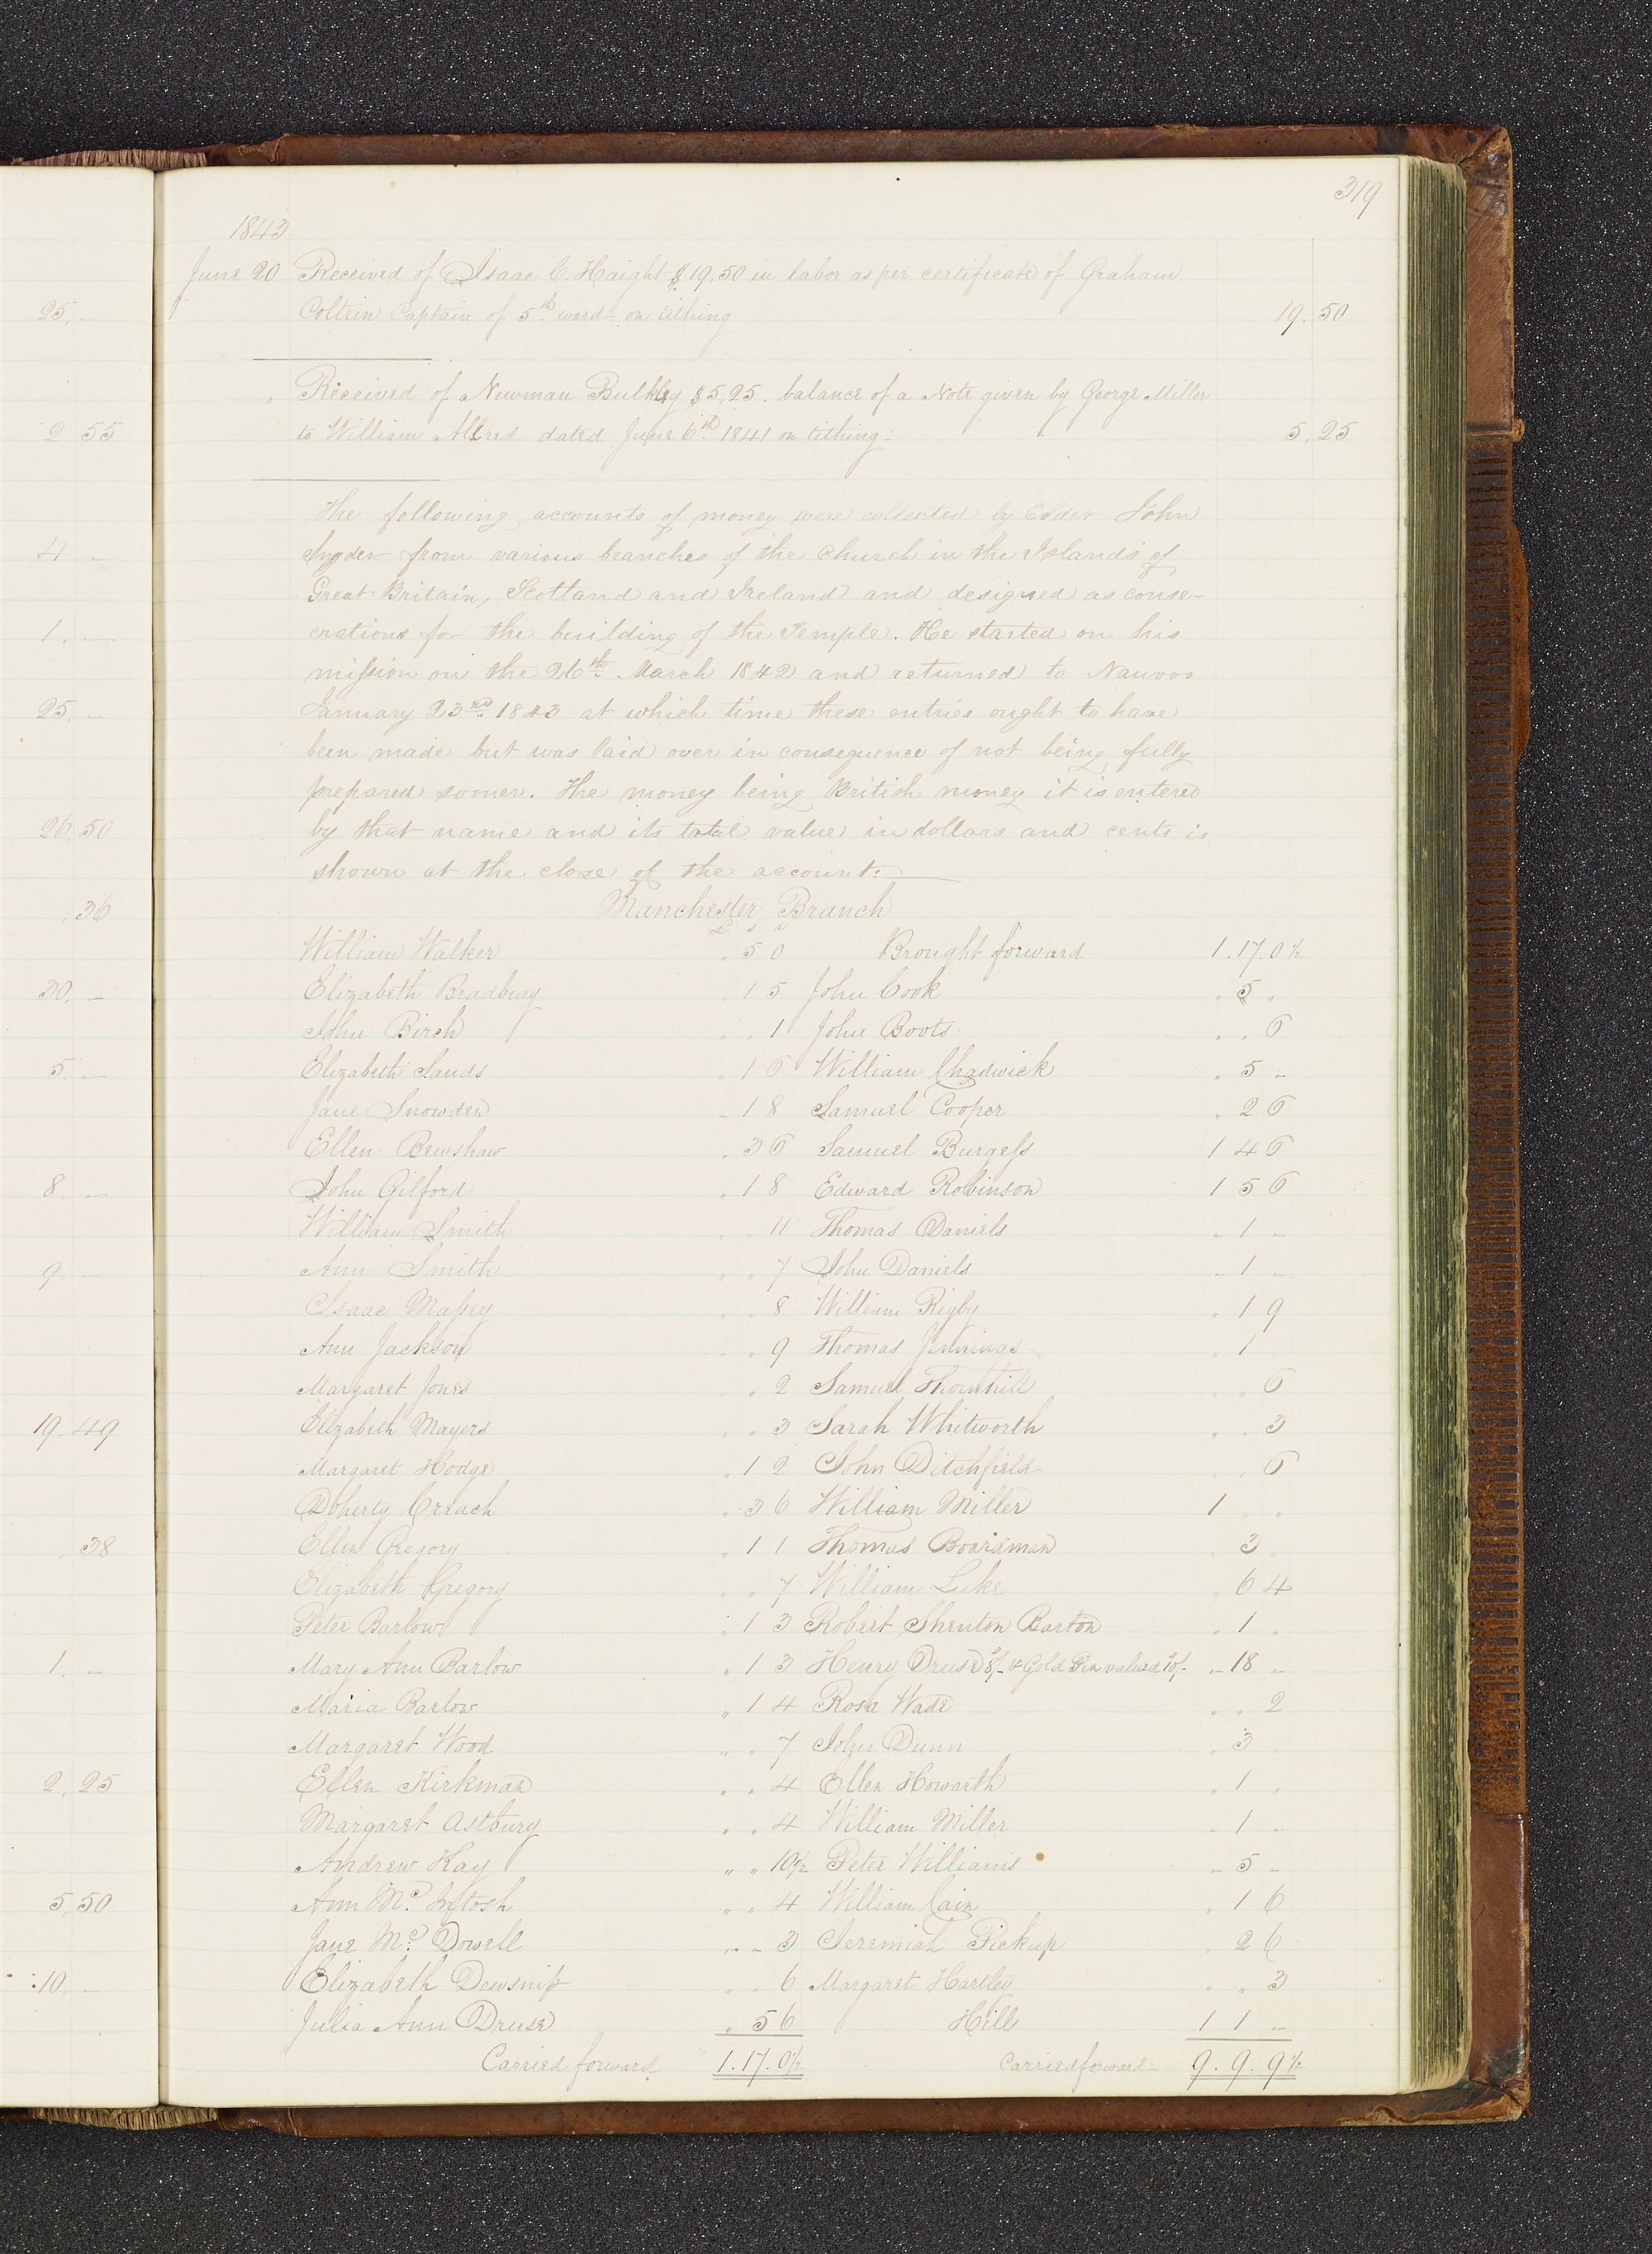 319
1843
June 20 Received of Isaac C. Haight $19.50 in labor as per certificate of Graham
Coltrin Captain of 5th ward on tithing 19.50
" Received of Newman Bulkley $5.25. balance of a Note given by George Miller
to William Allred dated June 6th 1841 on tithing. 5.25
The following accounts of money were collected by Elder John
Snyder from various branches of the Church in the Islands of
Great Britain, Scotland and Ireland and designed as conse-
crations for the building of the Temple. He started on his
mission on the 26th March 1842 and returned to Nauvoo
January 23rd 1843 at which time these entries ought to have
been made but was laid over in consequence of not being fully
prepared sooner. The money being British money it is entered
by that name and its total value in dollars and cents is
shown at the close of the account.
Manchester Branch
£ s d
William Walker " 5 0 Brought forward 1.17.0½
Elizabeth Bradbury " 1 5 John Cook " 5 "
John Birch " " 1 John Boots " " 6
Elizabeth Sands " 1 6 William Chadwick " 5 -
Jane Snowden - 1 8 Samuel Cooper " 2 6
Ellen Bewshaw " 3 6 Samuel Burgess 1 4 6
John Gilford " 1 8 Edward Robinson 1 5 6
William Smith " " 11 Thomas Daniels - 1 -
Ann Smith " " 7 John Daniels - 1 -
Isaac Massey " " 8 William Rigby " 1 9
Ann Jackson " " 9 Thomas Jennings " 1 "
Margaret Jones " " 2 Samuel Thornhill " " 6
Elizabeth Mayers " " 3 Sarah Whitworth " " 3
Margaret Hodge " 1 2 John Ditchfield " " 6
Doherty Creach " 3 6 William Miller 1 " "
Ellen Gregory " 1 1 Thomas Boardman " 3 "
Elizabeth Gregory " " 7 William Luke " 6 4
Peter Barlow " 1 3 Robert Shenton Barton " 1 "
Mary Ann Barlow " 1 3 Henry Druse 8/- & Gold Pin valued 10/- - 18 -
Maria Barlow " 1 4 Rosa Wade " " 2
Margaret Wood " " 7 John Dunn " 3 "
Ellen Kirkman " " 4 Ellen Howarth " 1 "
Margaret Astbury " " 4 William Miller - 1 -
Andrew Kay " " 10½ Peter Williams - 5 -
Ann Mc. Intosh " " 4 William Cain " 1 6
Jane Mc. Dowell " - 3 Jeremiah Pickup " 2 6
Elizabeth Dewsnip " " 6 Margaret Hartley " " 3
Julia Ann Druse " 5 6 Hill 1 1 -
Carried forward 1.17.0½ Carried forward 9.9.9½
25. -
2 55
4 -
1. -
25. -
26.50
.36
30. -
5. -
8. -
9 -
19.49
.38
1. -
2.25
5,50
10. -